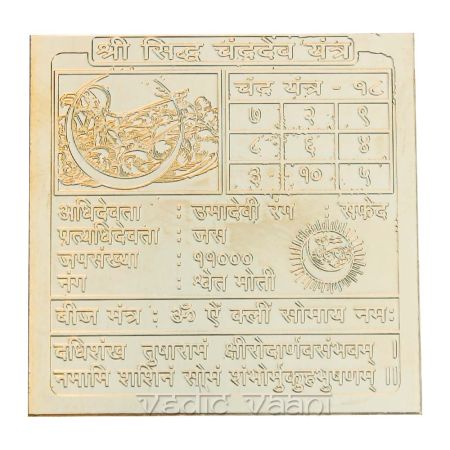 श्री सिद्ध चंद्रदेव यंत्र
चंद्र यंत्र - १८
७ २ ९
८ ६ ४
३ १० ५
अधिदेवता : उमादेवी रंग : सफेद
प्रत्यधिदेवता : जस
जपसंख्या : ११०००
नंग : श्वेत मोती
बीज मंत्र : ॐ ऐं क्लीं सोमाय नमः
दधिशंख तुषाराभं क्षीरोदार्णवसंभवम् ।
नमामि शशिनं सोमं शंभोर्मुकुटभुषणम् ॥
Vedic Vaani